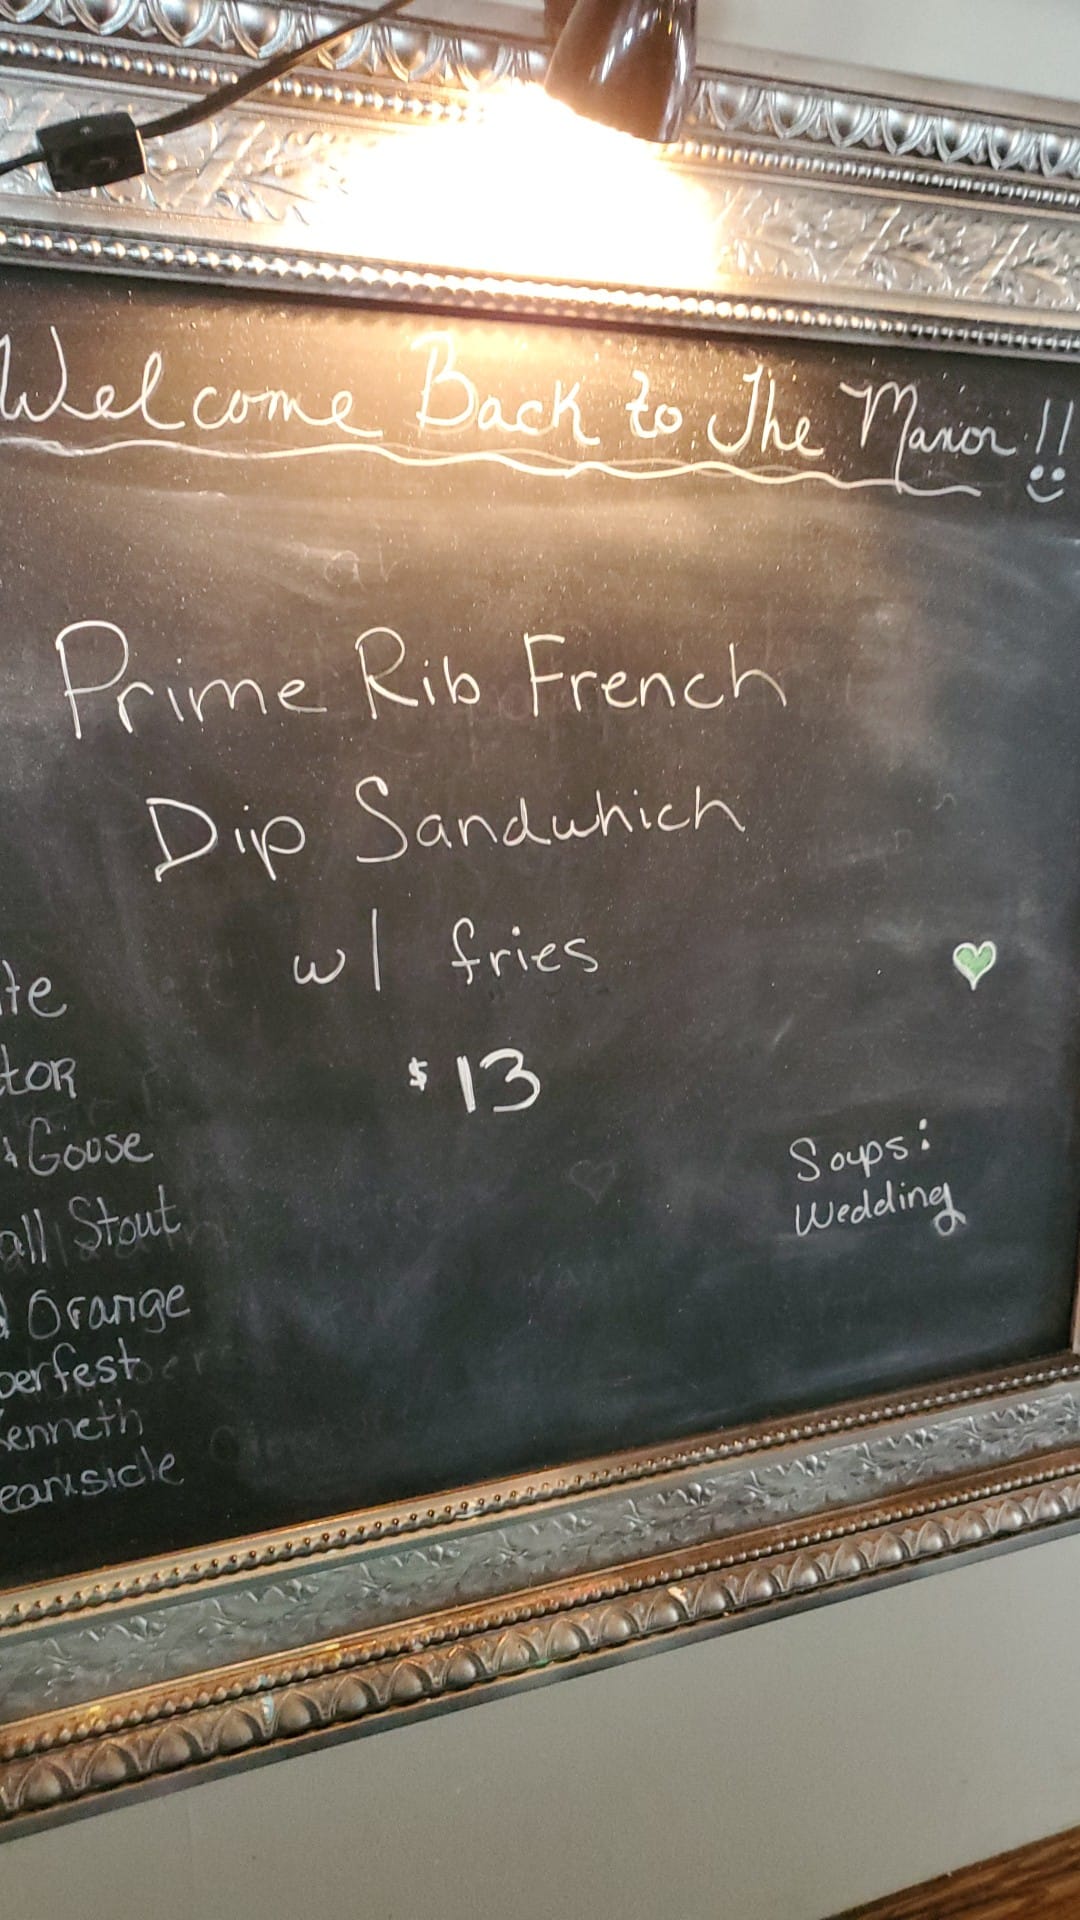 Welcome Back to The Manor!!
Prime Rib French
Dip Sandwhich
w/ fries
$13
te
tor
& Goose
all Stout
d Orange
berfest
Kenneth
eamsicle
Soups:
Wedding